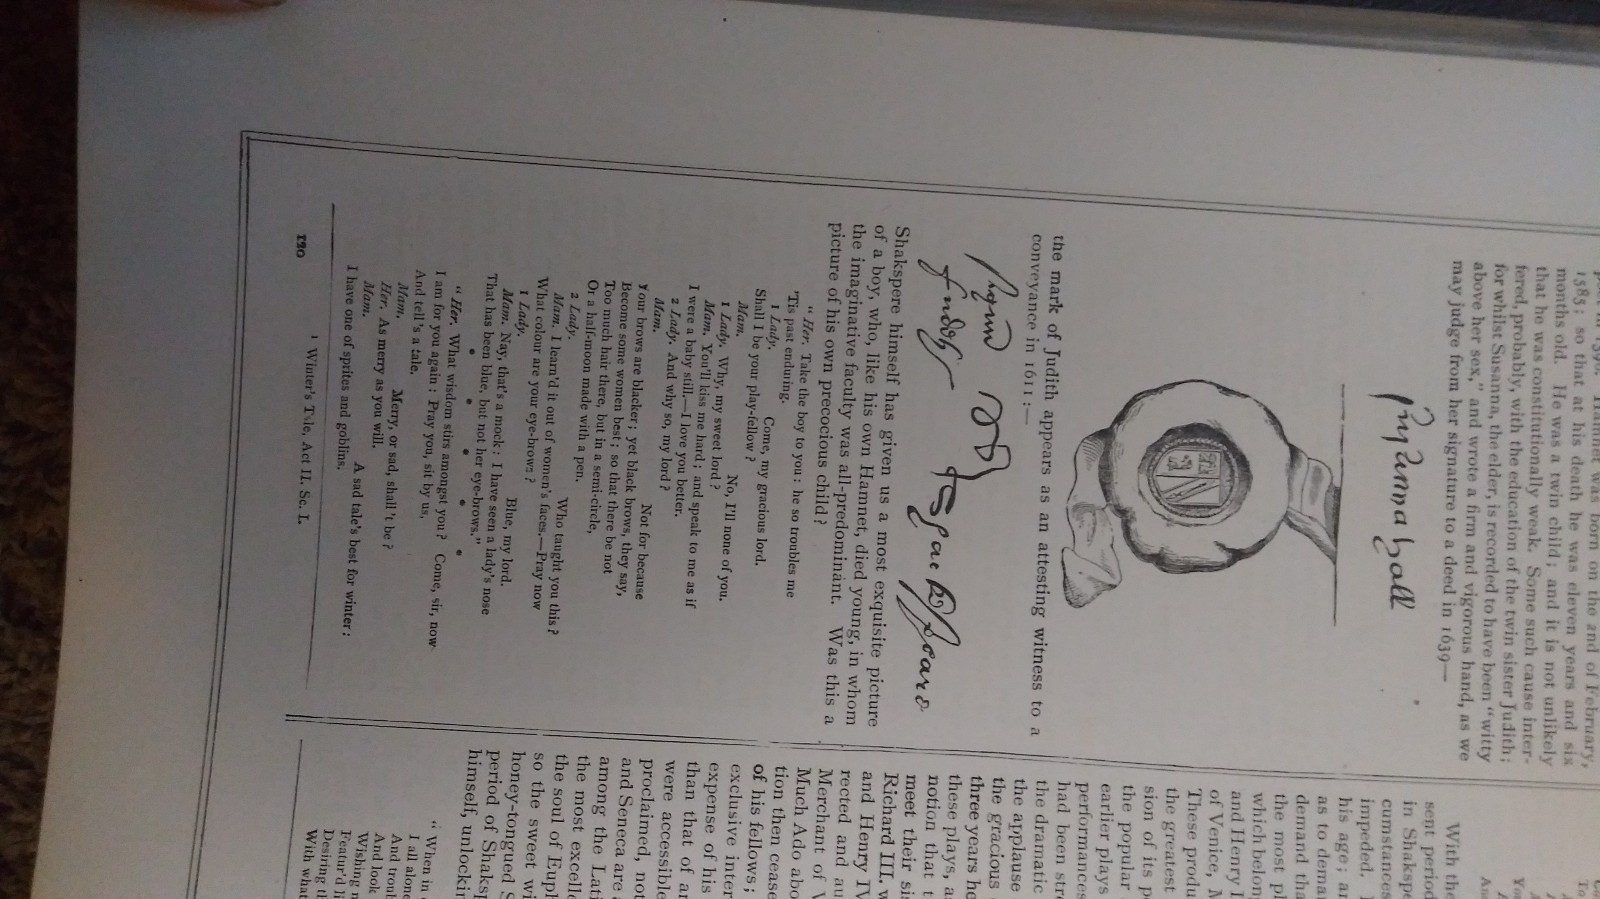 Hamnet was born on the 2nd of February,
1585; so that at his death he was eleven years and six
months old. He was a twin child; and it is not unlikely
that he was constitutionally weak. Some such cause inter-
fered, probably, with the education of the twin sister Judith;
for whilst Susanna, the elder, is recorded to have been "witty
above her sex," and wrote a firm and vigorous hand, as we
may judge from her signature to a deed in 1639—
hall
the mark of Judith appears as an attesting witness to a
conveyance in 1611:—
Shakspere himself has given us a most exquisite picture
of a boy, who, like his own Hamnet, died young, in whom
the imaginative faculty was all-predominant. Was this a
picture of his own precocious child?
"Her. Take the boy to you: he so troubles me
'Tis past enduring.
1 Lady. Come, my gracious lord.
Shall I be your play-fellow?
Mam. No, I'll none of you.
1 Lady. Why, my sweet lord?
Mam. You'll kiss me hard; and speak to me as if
I were a baby still.—I love you better.
2 Lady. And why so, my lord?
Mam. Not for because
Your brows are blacker; yet black brows, they say,
Become some women best; so that there be not
Too much hair there, but in a semi-circle,
Or a half-moon made with a pen.
2 Lady. Who taught you this?
Mam. I learn'd it out of women's faces.—Pray now
What colour are your eye-brows?
1 Lady. Blue, my lord.
Mam. Nay, that's a mock: I have seen a lady's nose
That has been blue, but not her eye-brows."
"Her. What wisdom stirs amongst you? Come, sir, now
I am for you again: Pray you, sit by us,
And tell's a tale.
Mam. Merry, or sad, shall't be?
Her. As merry as you will.
Mam. A sad tale's best for winter:
I have one of sprites and goblins.
1 Winter's Tale, Act II. Sc. I.
120
With the
sent period
in Shakspe
cumstances
impeded.
his age; an
as to deman
demand tha
the most pl
which belon
and Henry I
of Venice, M
These produ
the greatest
sion of its p
the popular
earlier plays
performances
had been stre
the dramatic
the applause
the gracious
three years he
these plays, a
notion that t
meet their si
Richard III. w
and Henry IV
rected and au
Merchant of V
Much Ado abo
tion then cease
of his fellows;
exclusive inter
expense of his
than that of an
were accessible
proclaimed, not
and Seneca are
among the Lati
the most excelle
the soul of Euph
so the sweet wi
honey-tongued S
period of Shaks
himself, unlockin
"When in
I all alone
And troub
And look
Wishing m
Featur'd li
Desiring th
With what